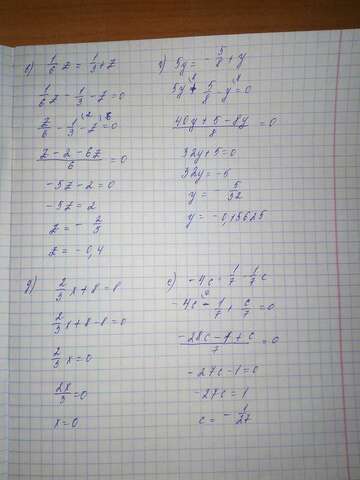 в) 1/6 z = 1/3 + z
1/6 z - 1/3 - z = 0
z/6 - 1/3 \2 - z \6 = 0
(z - 2 - 6z)/6 = 0
-5z - 2 = 0
-5z = 2
z = - 2/5
z = -0,4
г) 5y = - 5/8 + y
5y + 5/8 - y = 0
(40y + 5 - 8y)/8 = 0
32y + 5 = 0
32y = -5
y = - 5/32
y = -0,15625
д) 2/3 x + 8 = 8
2/3 x + 8 - 8 = 0
2/3 x = 0
2x/3 = 0
x = 0
е) -4c = 1/7 - 1/7 c
-4c - 1/7 + c/7 = 0
(-28c - 1 + c)/7 = 0
-27c - 1 = 0
-27c = 1
c = - 1/27